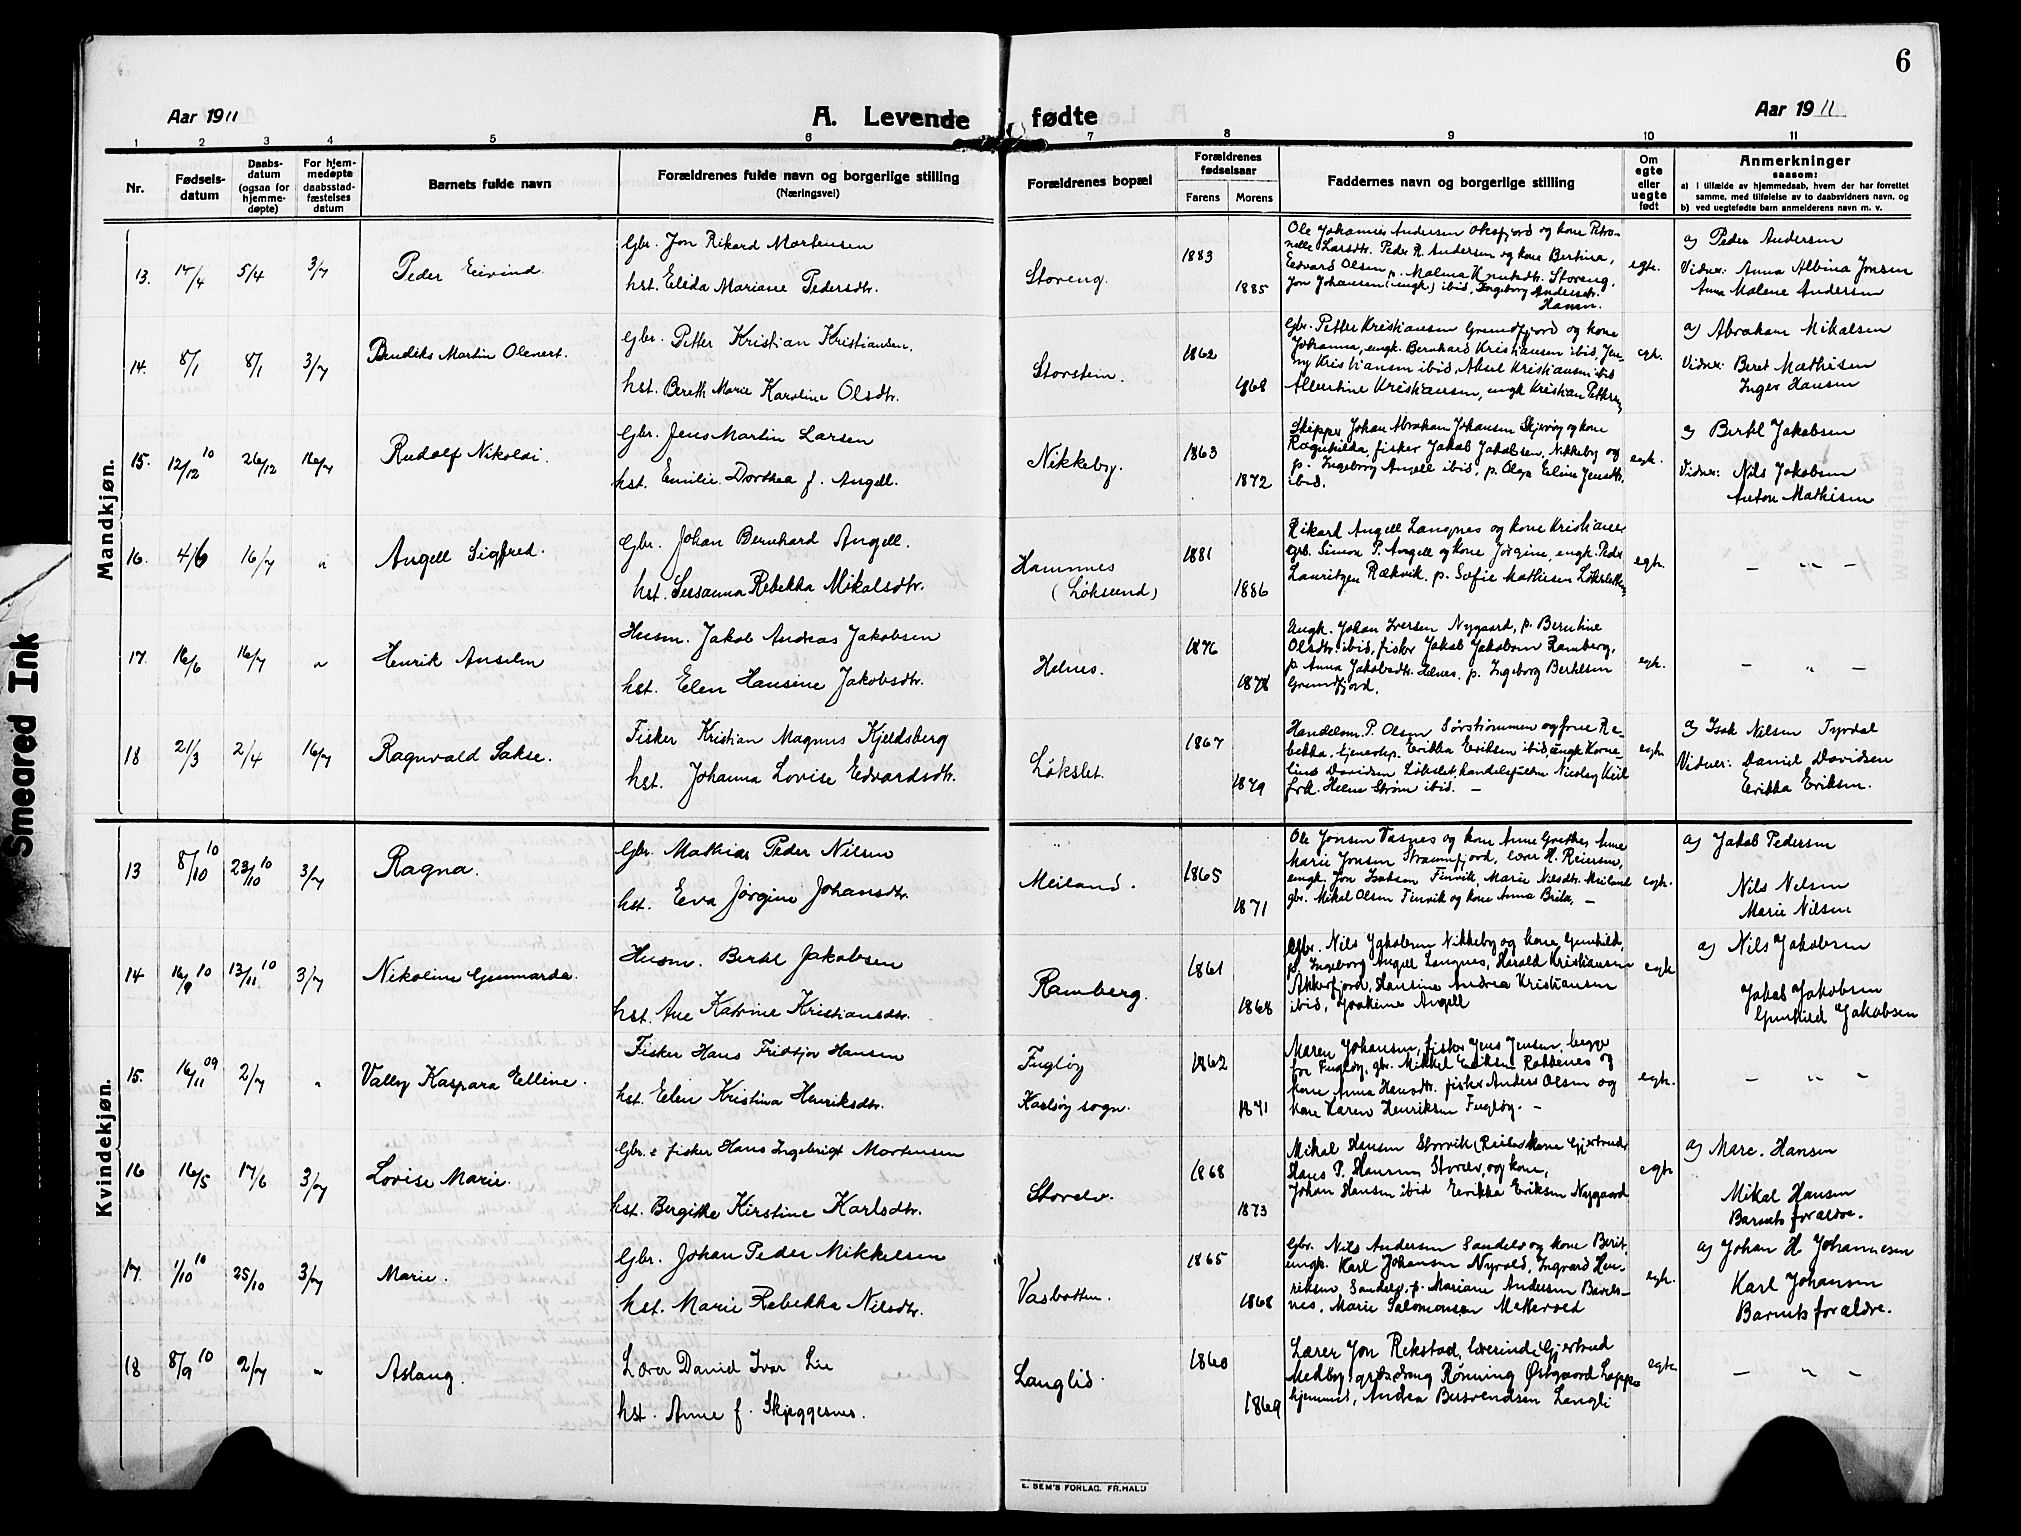 6
Aar 1911
A. Levende fødte
Aar 1911
1 2 3 4 5 6 7 8 9 10 11
Nr.
Fødsels-
datum
Daabs-
datum
(ogsaa for
hjemme-
døpte)
For hjem-
medøpte
daabsstad-
fæstelses
datum
Barnets fulde navn
Forældrenes fulde navn og borgerlige stilling
(Næringsvei)
Forældrenes bopæl
Forældrenes
fødselsaar
Farens
Morens
Faddernes navn og borgerlige stilling
Om
egte
eller
uegte
født
Anmerkninger
saasom:
a) i tilfælde av hjemmedaab, hvem der har forrettet
samme, med tilføielse av to daabsvidners navn, og
b) ved uegtefødte barn anmelderens navn m. v.
Mandkjøn.
13. 14/4 5/4 3/7 Peder Eivind.
Gbr. Jon Rikard Mortensen
hst. Elida Mariane Pedersdtr.
Storeng.
1883
1885
Ole Johannes Andersen Oksfjord og kone Petro-
nelle Larsdtr. Peder R. Andersen og kone Bertina,
Edvard Olsen, p. Malena Knutsdtr. Storeng,
Jon Johansen (ungk.) ibid, Ingeborg Andersdtr.
Hansen.
egte.
a) Peder Andersen
Vidner: Anna Albina Jonsen
Anna Malene Andersen
14. 8/1 8/1 3/7 Bendiks Martin Olenert.
Gbr. Petter Kristian Kristiansen.
hst. Bereth Marie Karoline Olsdtr.
Storstein.
1862
1868
Gbr. Petter Kristiansen Grundfjord og kone
Johanna, ungk. Bernhard Kristiansen ibid, Jen-
ny Kristiansen ibid, Aksel Kristiansen ibid
Albertine Kristiansen, ungk Kristian Pettersen
egte.
a) Abraham Mikalsen
Vidner: Beret Mathisen
Inger Hansen
15. 12/12 10 26/12 16/7 Rudolf Nikolai.
Gbr. Jens Martin Larsen
hst. Emilie Dorthea f. Angell.
Nikkeby.
1863
1872
Skipper Johan Abraham Johansen Skjervøy og kone
Ragnhilda, fisker Jakob Jakobsen, Nikkeby og
p. Ingeborg Angell ibid, p. Olga Eline Jensdtr.
ibid.
egte.
a) Bertel Jakobsen
Vidner: Nils Jakobsen
Anton Mathisen
16. 4/6 16/7 " Angell Sigfred.
Gbr. Johan Bernhard Angell.
hst. Susanna Rebekka Mikalsdtr.
Hamnnes
(Løksund)
1881
1886
Rikard Angell Langnes og kone Kristiane
gbr. Simon P. Angell og kone Jørgine, ungk. Peder
Lauritzen Rækvik, p. Sofie Mathisen Løkslet
egte.
— " —
17. 16/6 16/7 " Henrik Anselm
Husm. Jakob Andreas Jakobsen
hst. Elen Hansine Jakobsdtr.
Helnes.
1876
1878
Ungk. Johan Iversen Nygaard, p. Berntine
Olsdtr. ibid, fisker Jakob Jakobsen Ramberg,
p. Anna Jakobsdtr. Helnes. p. Ingeborg Bertelsen
Grundfjord.
egte.
— " —
18 21/3 2/4 16/7 Ragnvald Sakse.
Fisker Kristian Magnus Kjeldsberg
hst. Johanna Lovise Edvardsdtr.
Løkslet.
1867
1879
Handelsm. P. Olsen Sørstrømmen og frue Re-
bekka, tjenestep. Erikka Eriksen ibid, ungk. Korne-
lius Davidsen, Løkslet, handelsfuldm. Nicolay Keil
frk. Helene Strøm ibid. —
egte.
a) Isak Nilsen Tyrdal
Vidner: Daniel Davidsen
Erikka Eriksen.
Kvindekjøn.
13 8/10 10 23/10 10 3/7 Ragna.
Gbr. Mathias Peder Nilsen
hst. Eva Jørgine Johansdtr.
Meiland.
1865
1871
Ole Jonsen Vasnes og kone Anne Grethe, Anne
Marie Jonsen Straumfjord, lærer H. Reiersen,
ungk. Jon Isaksen Finvik, Marie Nilsdtr. Meiland
gbr. Mikal Olsen Finvik og kone Anna Brita, —
egte.
a) Jakob Pedersen
Nils Nilsen
Marie Nilsen
14 16/9 10 13/11 10 3/7 Nikoline Gunnarda.
Husm. Bertel Jakobsen
hst. Ane Katrine Kristiansdtr.
Ramberg.
1861
1868
Gbr. Nils Jakobsen Nikkeby og kone Gunhild,
p. Ingeborg Angell Langnes, Harald Kristiansen
Akkerfjord, Hansine Andrea Kristiansen
ibid, Joakime Angell
egte
a) Nils Jakobsen
Jakob Jakobsen
Gunhild Jakobsen
15. 16/11 09 2/7 " Vally Kaspara Elline.
Fisker Hans Fridtjov Hansen
hst. Elen Kristina Henriksdtr.
Fugløy
Karlsøy sogn.
1862
1871
Maren Johansen, fisker Jens Jensen, begge
for Fugløy, gbr. Mikkel Eriksen Rakkenes og
kone Anna Hansdtr. fisker Anders Olsen og
kone Karen Henriksen Fugløy. —
egte.
— " —
16 16/5 17/6 3/7 Lovise Marie.
Gbr. & fisker Hans Ingebrigt Mortensen
hst. Bergitte Kirstine Karlsdtr.
Storelv.
1868
1873
Mikal Hansen Storvik (Reisa) kone Gjertrud
Hans P. Hansen, Storelv, og kone,
Johan Hansen ibid Erikka Eriksen Nygaard
egte
a) Marc. Hansen
Mikal Hansen
Barnets forældre.
17. 1/10 10 25/10 3/7 Marie.
Gbr. Johan Peder Mikkelsen
hst. Marie Rebekka Nilsdtr.
Vasbotten.
1865
1868
Gbr. Nils Andersen Sandelv og kone Berit,
ungk. Karl Johansen Nyvold, Ingvard Hen-
riksen, Sandelv, p. Mariane Andersen Bavels-
nes, Marie Salomonsen Mettevold
egte.
a) Johan H. Johannesen
Karl Johansen
Barnets forældre.
18 8/9 10 2/7 " Aslaug.
Lærer David Ivar Lie
hst. Anne f. Skjeggesnes.
Langlid.
1860
1869
Lærer Jon Rekstad, lærerinde Gjertrud
Medby, Rønning Østgaard
hjemmet, Andrea Bersvendsen Langli
egte.
— " —
E. SEM'S FORLAG. FR.HALD
Smeared Ink